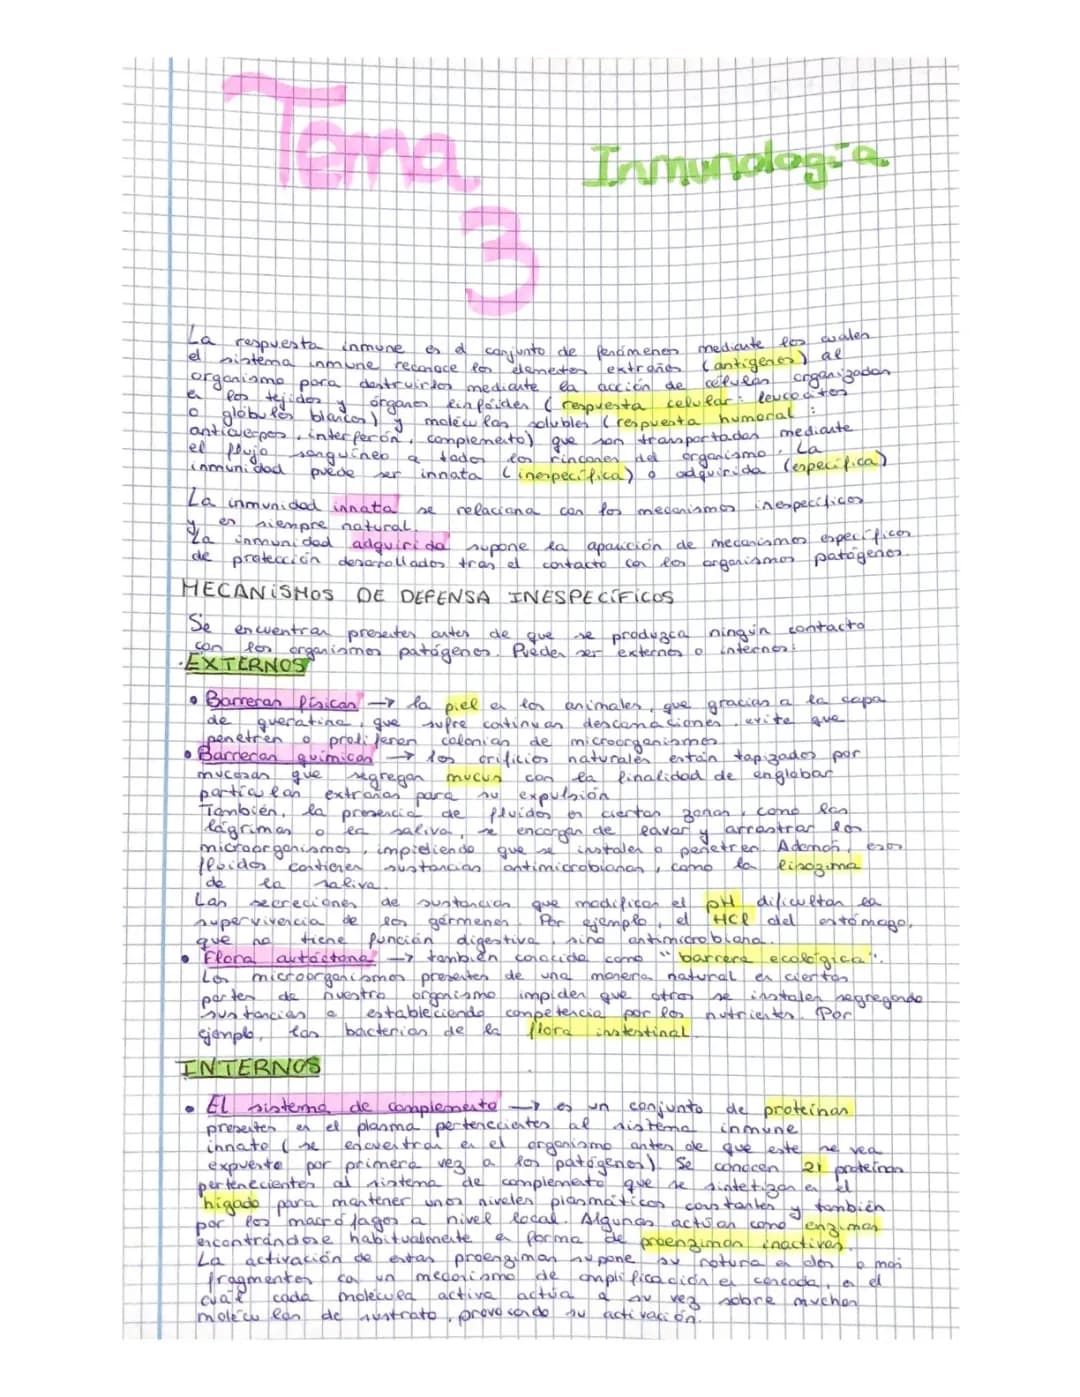 Tema
3
Inmunología
La respuesta inmune es el conjunto de fenómenos mediante los cuales
el sistema inmune reconoce los elementos extraños (antígenos) al
organismo para destruirlos mediante la acción de células organizadas
en los tejidos y órganos linfoides (respuesta celular: leucocitos
o glóbulos blancos) y moléculas solubles (respuesta humoral:
anticuerpos, interferón, complemento) que son transportadas mediante
el flujo sanguíneo a todos los rincones del organismo. La
inmunidad puede ser innata (inespecífica) o adquirida (específica)
La inmunidad innata se relaciona con los mecanismos inespecíficos
y es siempre natural.
La inmunidad adquirida supone la aparición de mecanismos específicos
de protección desarrollados tras el contacto con los organismos patógenos.
MECANISMOS DE DEFENSA INESPECÍFICOS
Se encuentran presentes antes de que se produzca ningún contacto
con los organismos patógenos. Pueden ser externos o internos:
·EXTERNOS
• Barreras físicas → la piel en los animales, que gracias a la capa
de queratina, que sufre continuas descamaciones, evita que
penetren o proliferen colonias de microorganismos
• Barreras químicas → los orificios naturales están tapizados por
mucosas que segregan mucus con la finalidad de englobar
partículas extrañas para su expulsión
También, la presencia de fluidos en ciertas zonas, como las
lágrimas o la saliva, se encargan de lavar y arrastrar los
microorganismos, impidiendo que se instalen o penetren. Además, esos
fluidos contienen sustancias antimicrobianas, como la lisozima
de la saliva.
Las secreciones de sustancias que modifican el pH dificultan la
supervivencia de los gérmenes. Por ejemplo, el HCl del estómago,
que no tiene función digestiva, sino antimicrobiana.
• Flora autóctona → también conocida como "barrera ecológica".
Los microorganismos presentes de una manera natural en ciertas
partes de nuestro organismo impiden que otros se instalen segregando
sustancias o estableciendo competencia por los nutrientes. Por
ejemplo, las bacterias de la flora instestinal.
INTERNOS
• El sistema de complemento → es un conjunto de proteínas
presentes en el plasma pertenecientes al sistema inmune
innato (se encuentran en el organismo antes de que este se vea
expuesto por primera vez a los patógenos). Se conocen 21 proteínas
pertenecientes al sistema de complemento que se sintetizan en el
hígado para mantener unos niveles plasmáticos constantes y también
por los macrófagos a nivel local. Algunas actúan como enzimas
encontrándose habitualmente en forma de proenzimas inactivas.
La activación de estas proenzimas supone su rotura en dos o más
fragmentos con un mecanismo de amplificación en cascada, en el
cuál cada molécula activa actúa a su vez sobre muchas
moléculas de sustrato, provocando su activación.